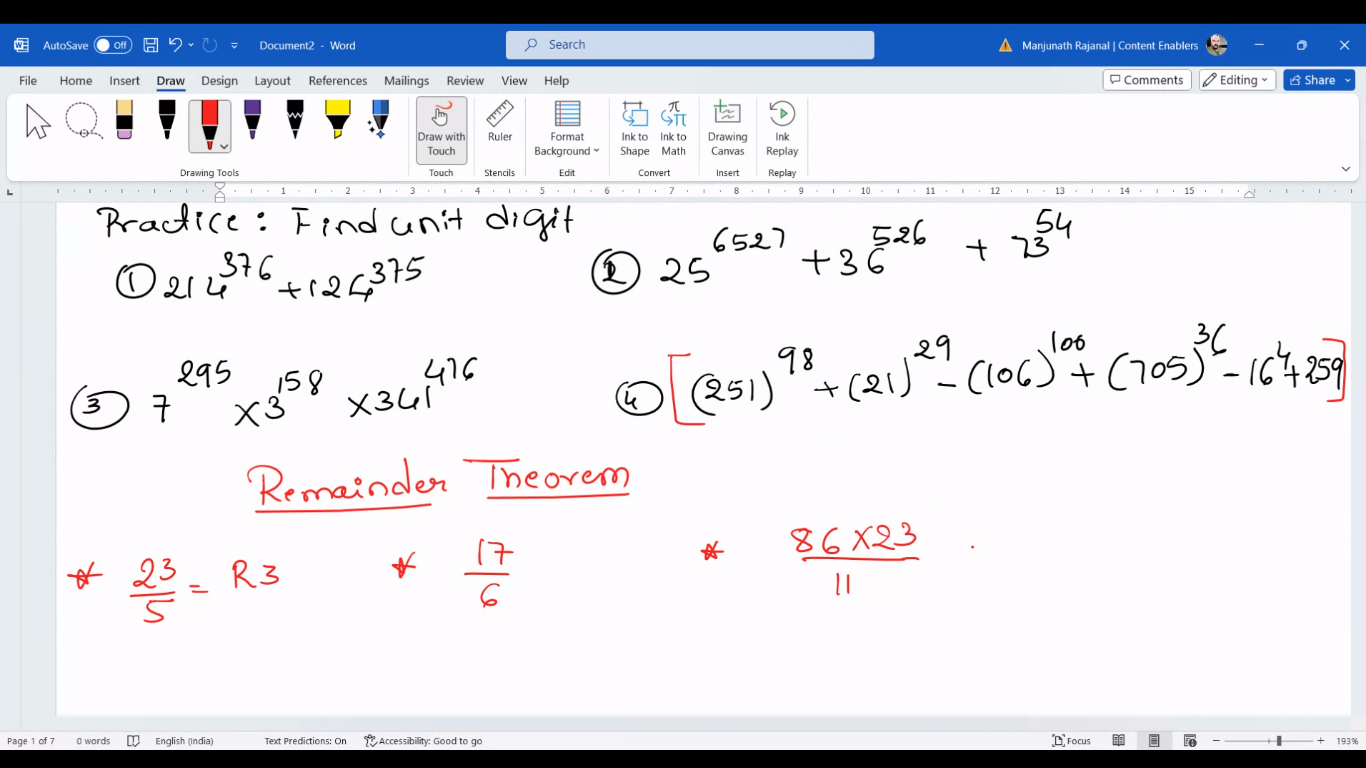 AutoSave Off Document2 - Word Search Manjunath Rajanal | Content Enablers
File Home Insert Draw Design Layout References Mailings Review View Help Comments Editing Share
Draw with Touch Ruler Format Background Ink to Shape Ink to Math Drawing Canvas Ink Replay
Drawing Tools Touch Stencils Edit Convert Insert Replay
1 2 3 4 5 6 7 8 9 10 11 12 13 14 15
Practice : Find unit digit
① 214^376 + 124^375 ② 25^6527 + 36^526 + 73^54
③ 7^295 × 3^158 × 341^476 ④ [(251)^98 + (21)^29 - (106)^100 + (705)^36 - 16^4 + 259]
Remainder Theorem
* 23/5 = R3 * 17/6 * 86×23/11
Page 1 of 7 0 words English (India) Text Predictions: On Accessibility: Good to go Focus 193%